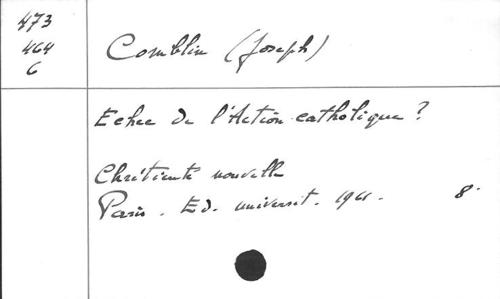 473
464
6
Comblin (Joseph)
Echec de l'Action catholique ?
Chrétienté nouvelle
Paris. Ed. universit. 1961. 8°